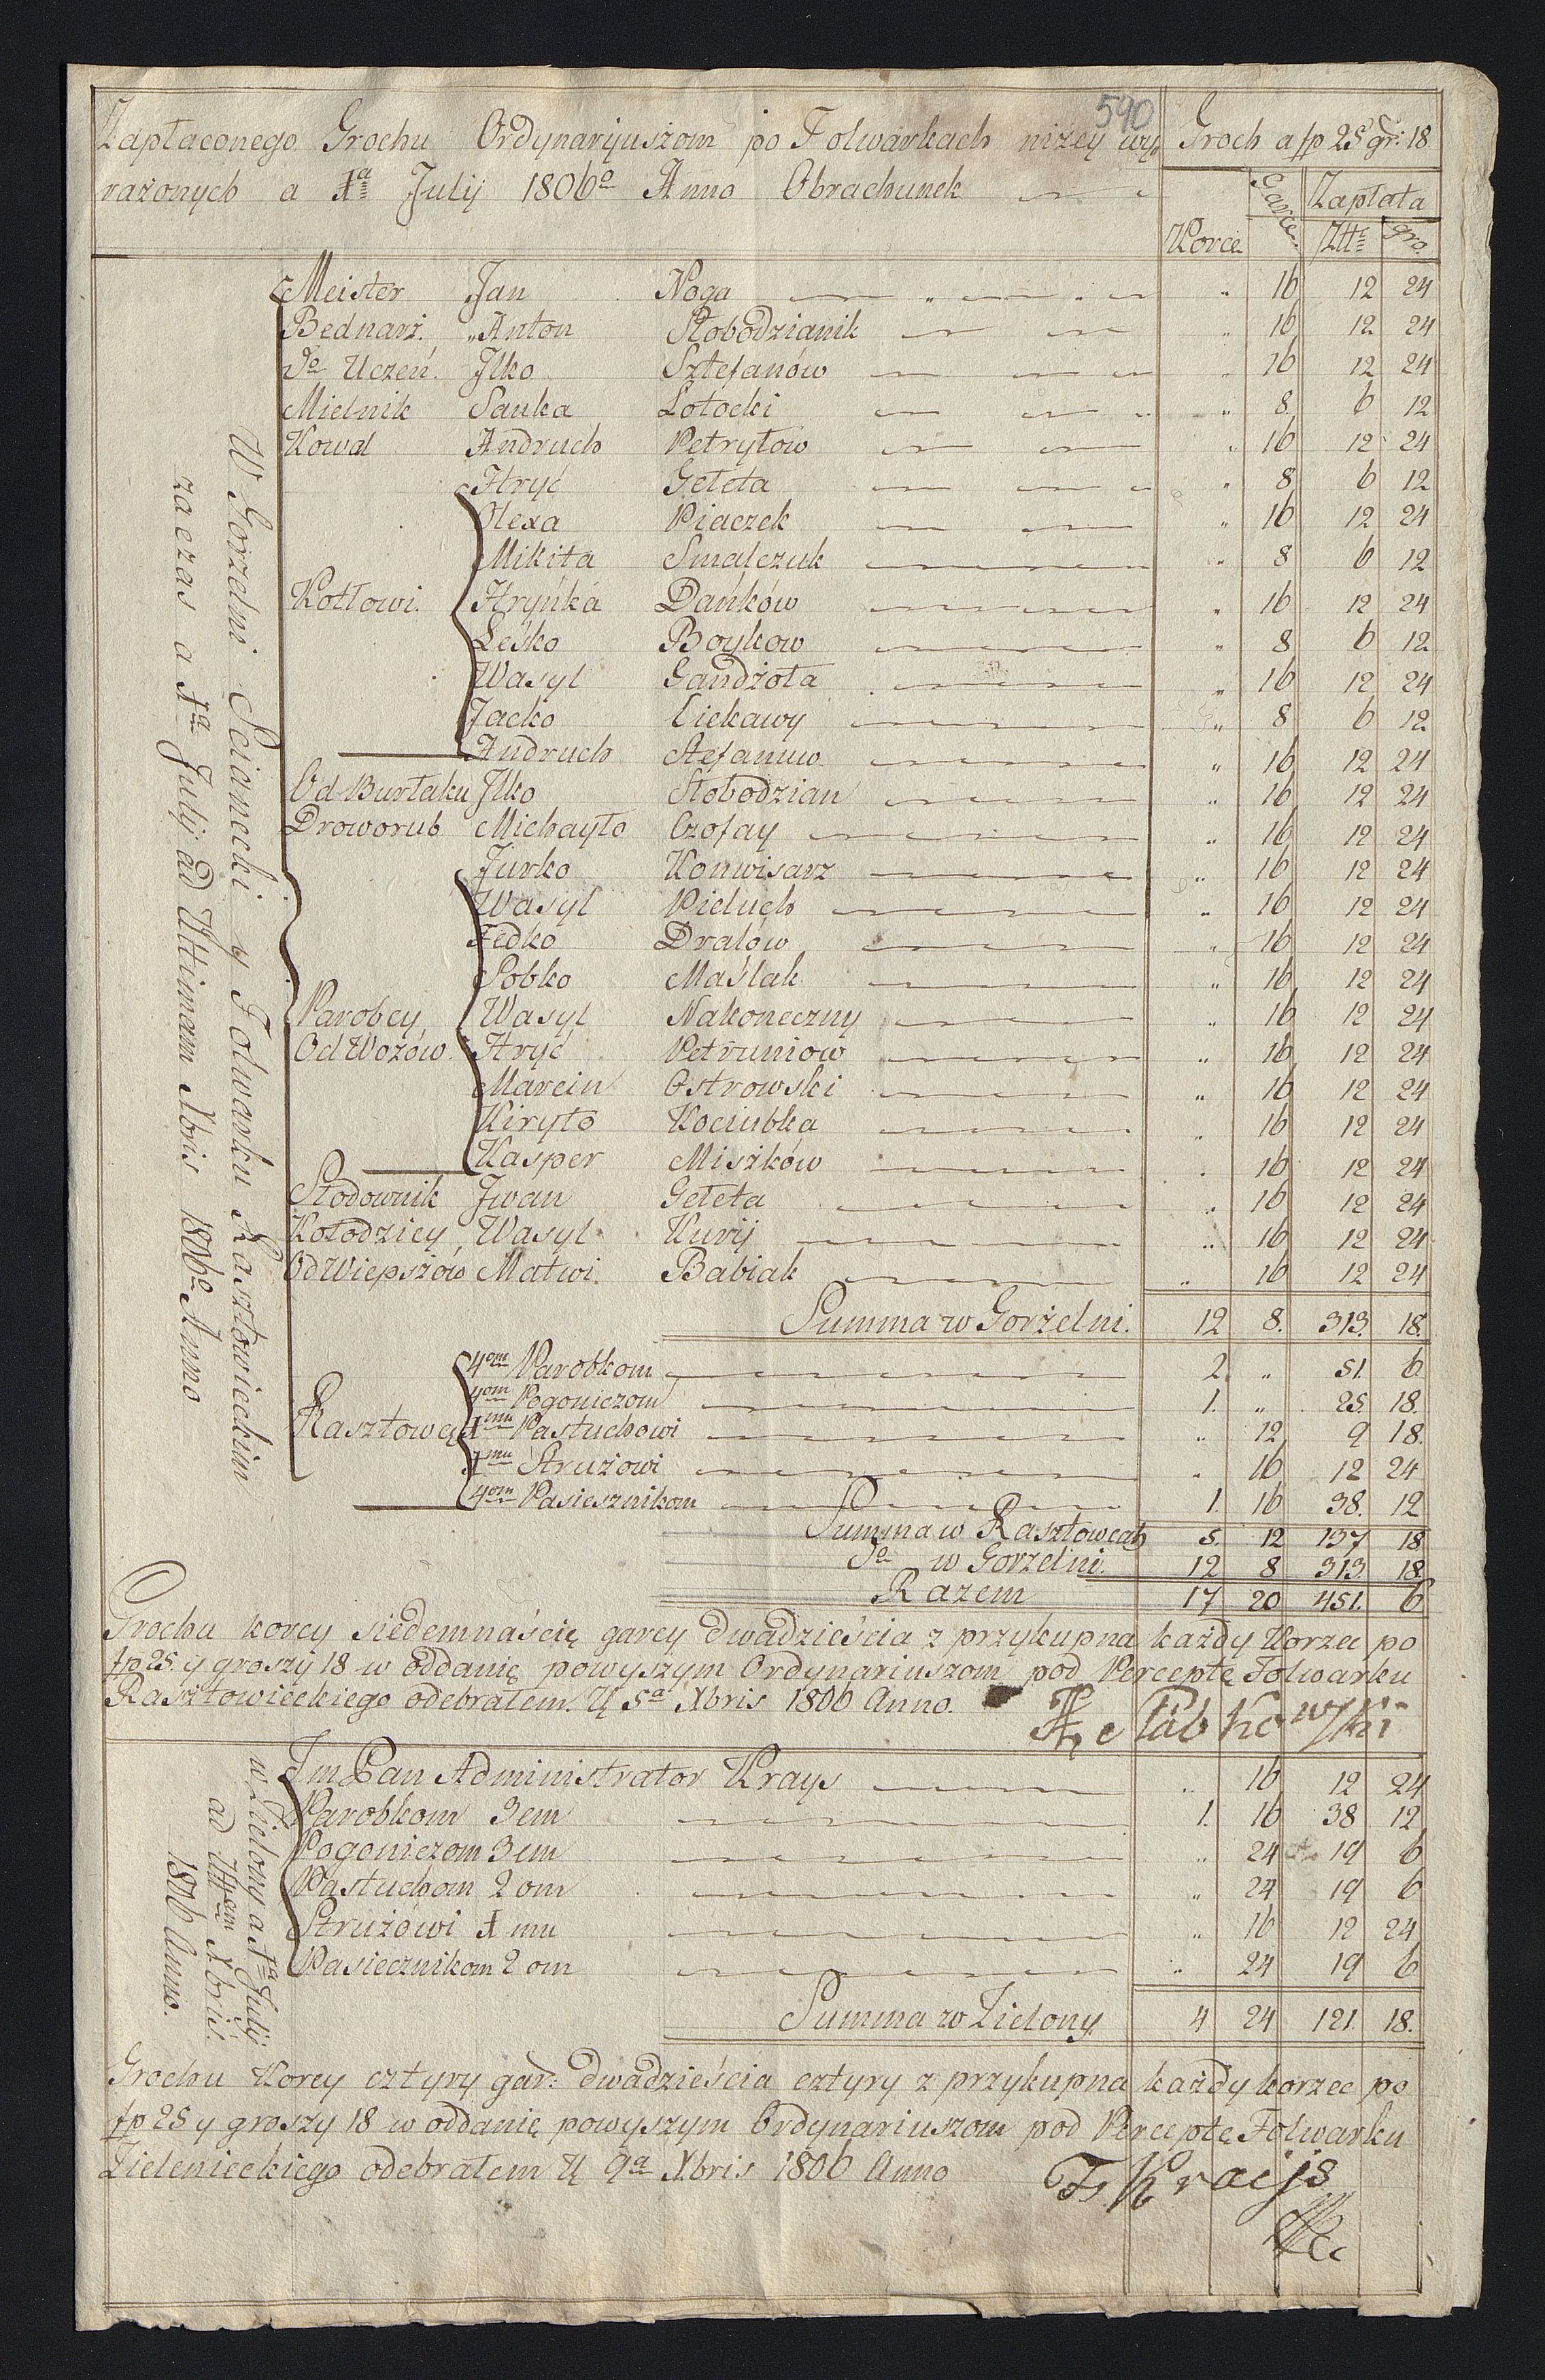 590
Zapłaconego Grochu Ordynaryuszom po Folwarkach niżey wy
rażonych a 1a July 1806o Anno Obrachunek
Groch a fp 25 gr: 18
Korce Garce Zapłata
Złte gro.
W Gorzelni Scianecki y Folwarku Rasztowieckim
za czas a 1a July ad Ultimam Xbris 1806o Anno
Meister Jan Noga " 16 12 24
Bednarz. Anton Słobodzianik " 16 12 24
do Uczeń. Jlko Sztefanów " 16 12 24
Mielnik Sanka Łotocki " 8. 6 12
Kowal Andruch Petryłow " 16 12 24
Hryć Geleta " 8 6 12
Olexa Piaczek " 16 12 24
Mikita Smalczuk " 8 6 12
Kotłowi. Hryńka Dańków " 16 12 24
Leśko Boykow " 8 6 12
Wasyl Gandżoła " 16 12 24
Jacko Ciekawy " 8 6 12
Andruch Stefanuw " 16 12 24
Od Burłaku Jlko Słobodzian " 16 12 24
Droworub Michayło Czofay " 16 12 24
Jurko Konwisarz " 16 12 24
Wasyl Pieluch " 16 12 24
Fedko Dralów " 16 12 24
Sobko Maślak " 16 12 24
Parobcy Wasyl Nakoneczny " 16 12 24
Od Wozów. Hryć Petruniow " 16 12 24
Marcin Ostrowski " 16 12 24
Kiryło Kociubka " 16 12 24
Kasper Miszków " 16 12 24
Słodownik Jwan Geleta " 16 12 24
Kołodziey Wasyl Kurij " 16 12 24
Od Wiepszów Matwi. Babiak " 16 12 24
Summa w Gorzelni. 12 8. 313. 18.
4om Parobkom 2. " 51. 6
4om Pogoniczom 1. " 25. 18.
Rasztowcy 1mu Pastuchowi " 12 9 18.
1mu Strużowi " 16 12 24
4om Pasiesznikom 1. 16 38. 12
Summa w Rasztowcah 5. 12 137 18
do w Gorzelni. 12 8 313. 18.
Razem 17 20 451. 6
Grochu korcy siedemnaście garcy dwadzieścia z przykupna każdy Korzec po
fp 25. y groszy 18 w oddanię powyszym Ordynariuszom pod Perceptę Folwarku
Rasztowieckiego odebrałem. D 5a Xbris 1806 Anno.
w Zielony a 1a July
ad Ultam Xbris.
1806 Anno.
Jm Pan Administrator Krays " 16 12 24
Parobkom 3em 1. 16 38 12
Pogoniczom 3em " 24 19 6
Pastuchom 2om " 24 19 6
Strużowi 1mu " 16 12 24
Pasiecznikom 2om " 24 19 6
Summa w Zielony. 4 24 121. 18.
Grochu Korcy cztyry gar: dwadzieścia cztyry z przykupna każdy korzec po
fp 25 y groszy 18 w oddanię powyszym Ordynariuszom pod Perceptę Folwarku
Zielenieckiego odebrałem D 9a Xbris 1806 Anno
Fr Kraijs